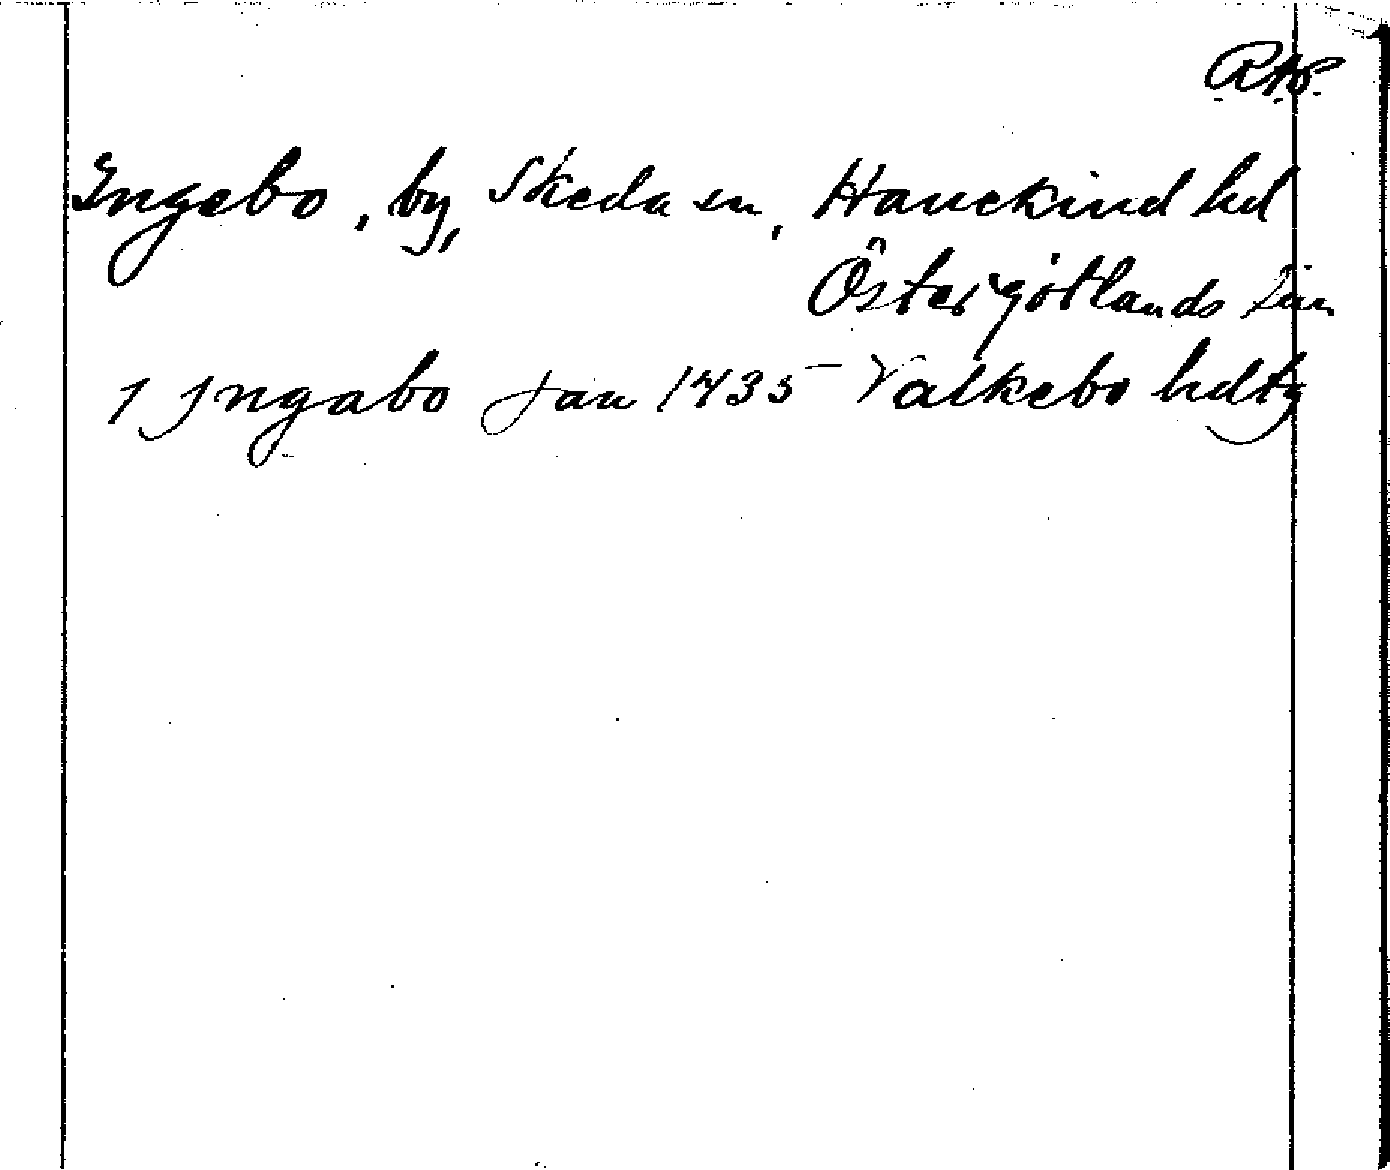 RAp.
Ingebo, by, Skeda sn, Hanekind hd
Östergötlands län
I Jngabo Jan 1435 Valkebo hdtg